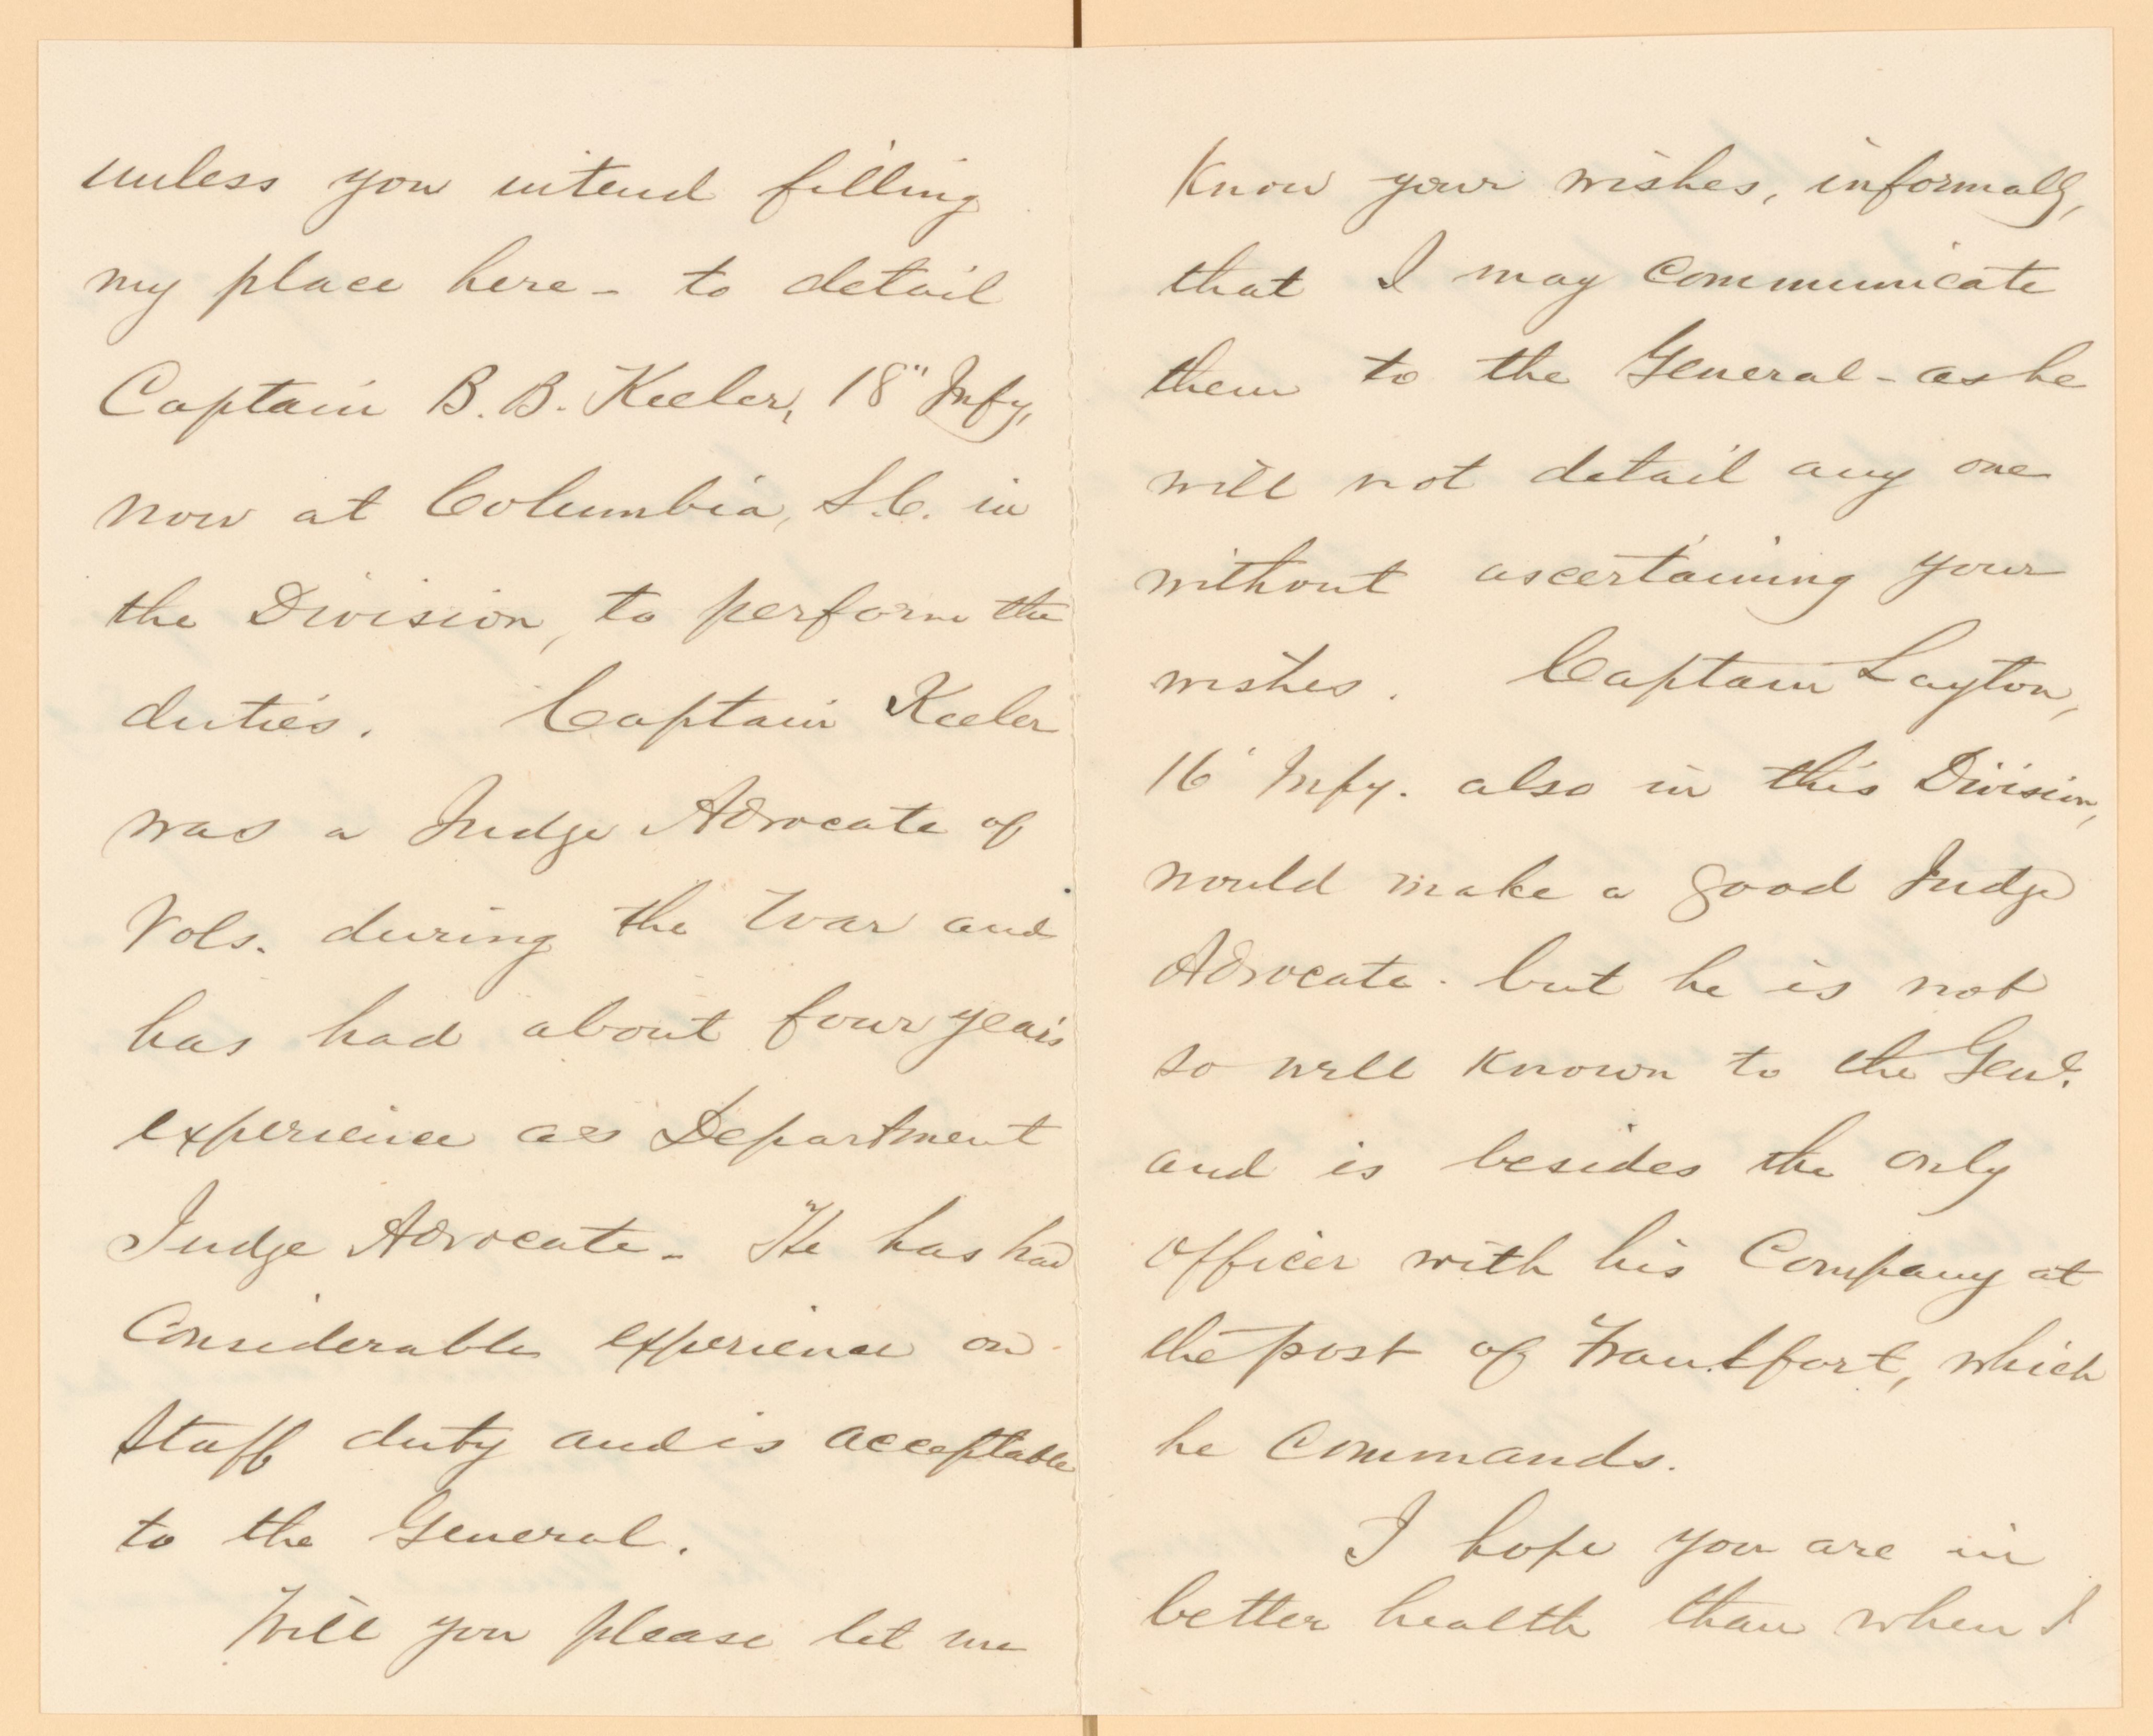 unless you intend filling
my place here - to detail
Captain B. B. Keeler, 18" Infy,
now at Columbia, S.C. in
the Division, to perform the
duties. Captain Keeler
was a Judge Advocate of
Vols. during the War and
has had about four years
experience as Department
Judge Advocate - He has had
Considerable experience on
staff duty and is acceptable
to the General.
Will you please let me
Know your wishes, informally,
that I may Communicate
them to the General - as he
will not detail any one
without ascertaining your
wishes. Captain Layton,
16' Infy. also in this Division,
would make a good Judge
Advocate - but he is not
so well Known to the Genl.
and is besides the only
officer with his Company at
the post of Frankfort, which
he Commands.
I hope you are in
better health than when I